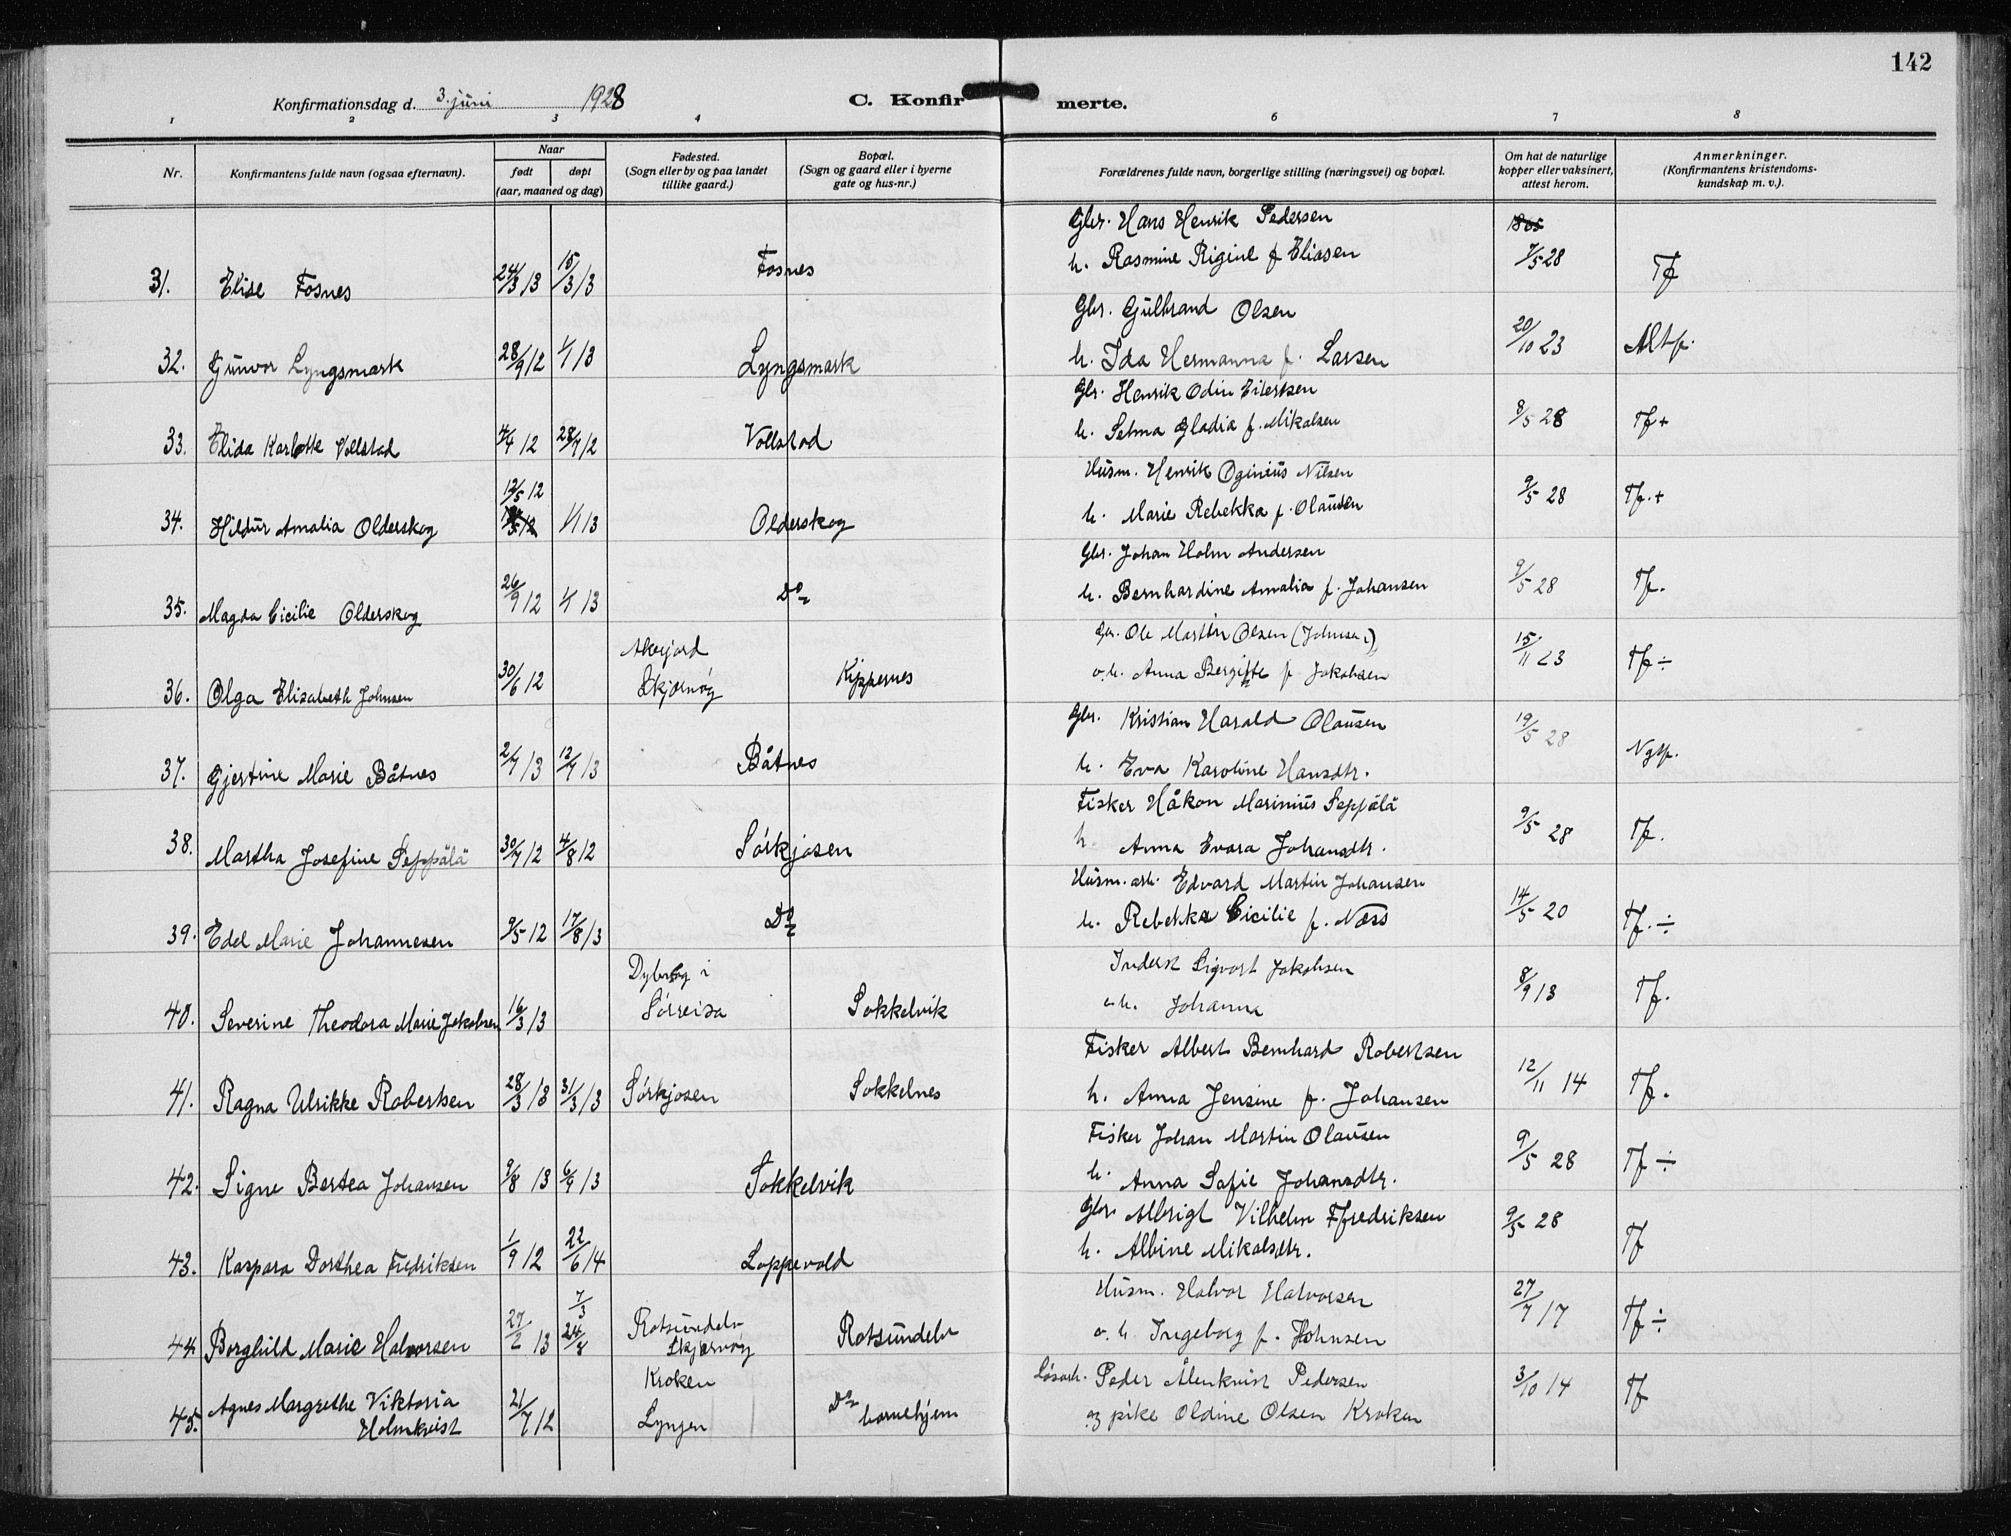 142
Konfirmationsdag d. 3. juni 1928
C. Konfirmerte.
1 2 3 4 6 7 8
Nr.
Konfirmantens fulde navn (ogsaa efternavn).
Naar
født døpt
(aar, maaned og dag)
Fødested.
(Sogn eller by og paa landet
tillike gaard.)
Bopæl.
(Sogn og gaard eller i byerne
gate og hus-nr.)
Forældrenes fulde navn, borgerlige stilling (næringsvei) og bopæl.
Om hat de naturlige
kopper eller vaksinert,
attest herom.
Anmerkninger.
(Konfirmantens kristendoms-
kundskap m. v.).
Gbr. Hans Henrik Pedersen
31. Elise Fosnes 24/3 13 15/3 13 Fosnes h. Rasmine Regine f Eliasen 7/5 28 Tf
Gbr. Gulbrand Olsen
32. Gunvor Lyngsmark 28/9 12 1/1 13 Lyngsmark h. Ida Hermanna f. Larsen 20/10 23 Mtf.
Gbr. Henrik Odin Eilertsen
33. Elida Karlotte Vollstad 4/4 12 28/7 12 Vollstad h. Selma Gladia f. Mikalsen 8/5 28 Tf +
12/5 12 Husm. Henrik Oginius Nilsen
34. Hildur Amalia Olderskog 1/1 13 Olderskog h. Marie Rebekka f. Olausen 9/5 28 Tf. +
Gbr. Johan Holm Andersen
35. Magda Cicilie Olderskog 26/9 12 1/1 13 Do h. Bernhardine Amalia f. Johansen 9/5 28 Tf.
Akejord Gbr. Ole Martin Olsen (Johnsen)
36. Olga Elisabeth Johnsen 30/6 12 Skjervøy Kippernes o.h. Anna Bergitte f Jakobsen 15/11 23 Tf ÷
Gbr. Kristian Harald Olausen
37. Gjertine Marie Båtnes 2/7 13 12/7 13 Båtnes h. Eva Karoline Hansdtr. 19/5 28 Ngtf.
Fisker Håkon Marinius Seppälä
38. Martha Josefine Seppälä 30/7 12 4/8 12 Sörkjosen h. Anna Evara Johansdtr. 9/5 28 Tf.
Husm. arb. Edvard Martin Johansen
39. Edel Marie Johannesen 9/5 12 17/8 13 Do h. Rebekka Cicilie f. Næss 14/5 20 Tf. ÷
Dybvåg i Inderst Sigvart Jakobsen
40. Severine Theodora Marie Jakobsen 16/3 13 Sörreisa Sokkelvik o.h. Johanna 8/9 13 Tf.
Fisker Albert Bernhard Robertsen
41. Ragna Ulrikke Robertsen 28/3 13 31/3 13 Sörkjosen Sokkelnes h. Anna Jensine f. Johansen 12/11 14 Tf.
Fisker Johan Martin Olausen
42. Signe Bertea Johansen 9/8 13 6/9 13 Sokkelvik h. Anna Sofie Johansdtr. 9/5 28 Tf ÷
Gbr Albrigt Vilhelm Fredriksen
43. Kaspara Dorthea Fredriksen 1/9 12 22/6 14 Loppevold h. Albine Mikalsdtr. 9/5 28 Tf
7/3 Husm. Halvor Halvorsen
44. Borghild Marie Halvorsen 27/2 13 24/8 Rotsundelv Skjervøy Rotsundelv o.h. Ingeborg f. Johnsen 27/7 17 Tf ÷
Kroken Løsarb. Peder Ålenkvist Pedersen
45. Agnes Margrethe Viktoria Holmkvist 21/7 12 Lyngen Do barnehjem og pike Oldine Olsen Kroken 3/10 14 Tf